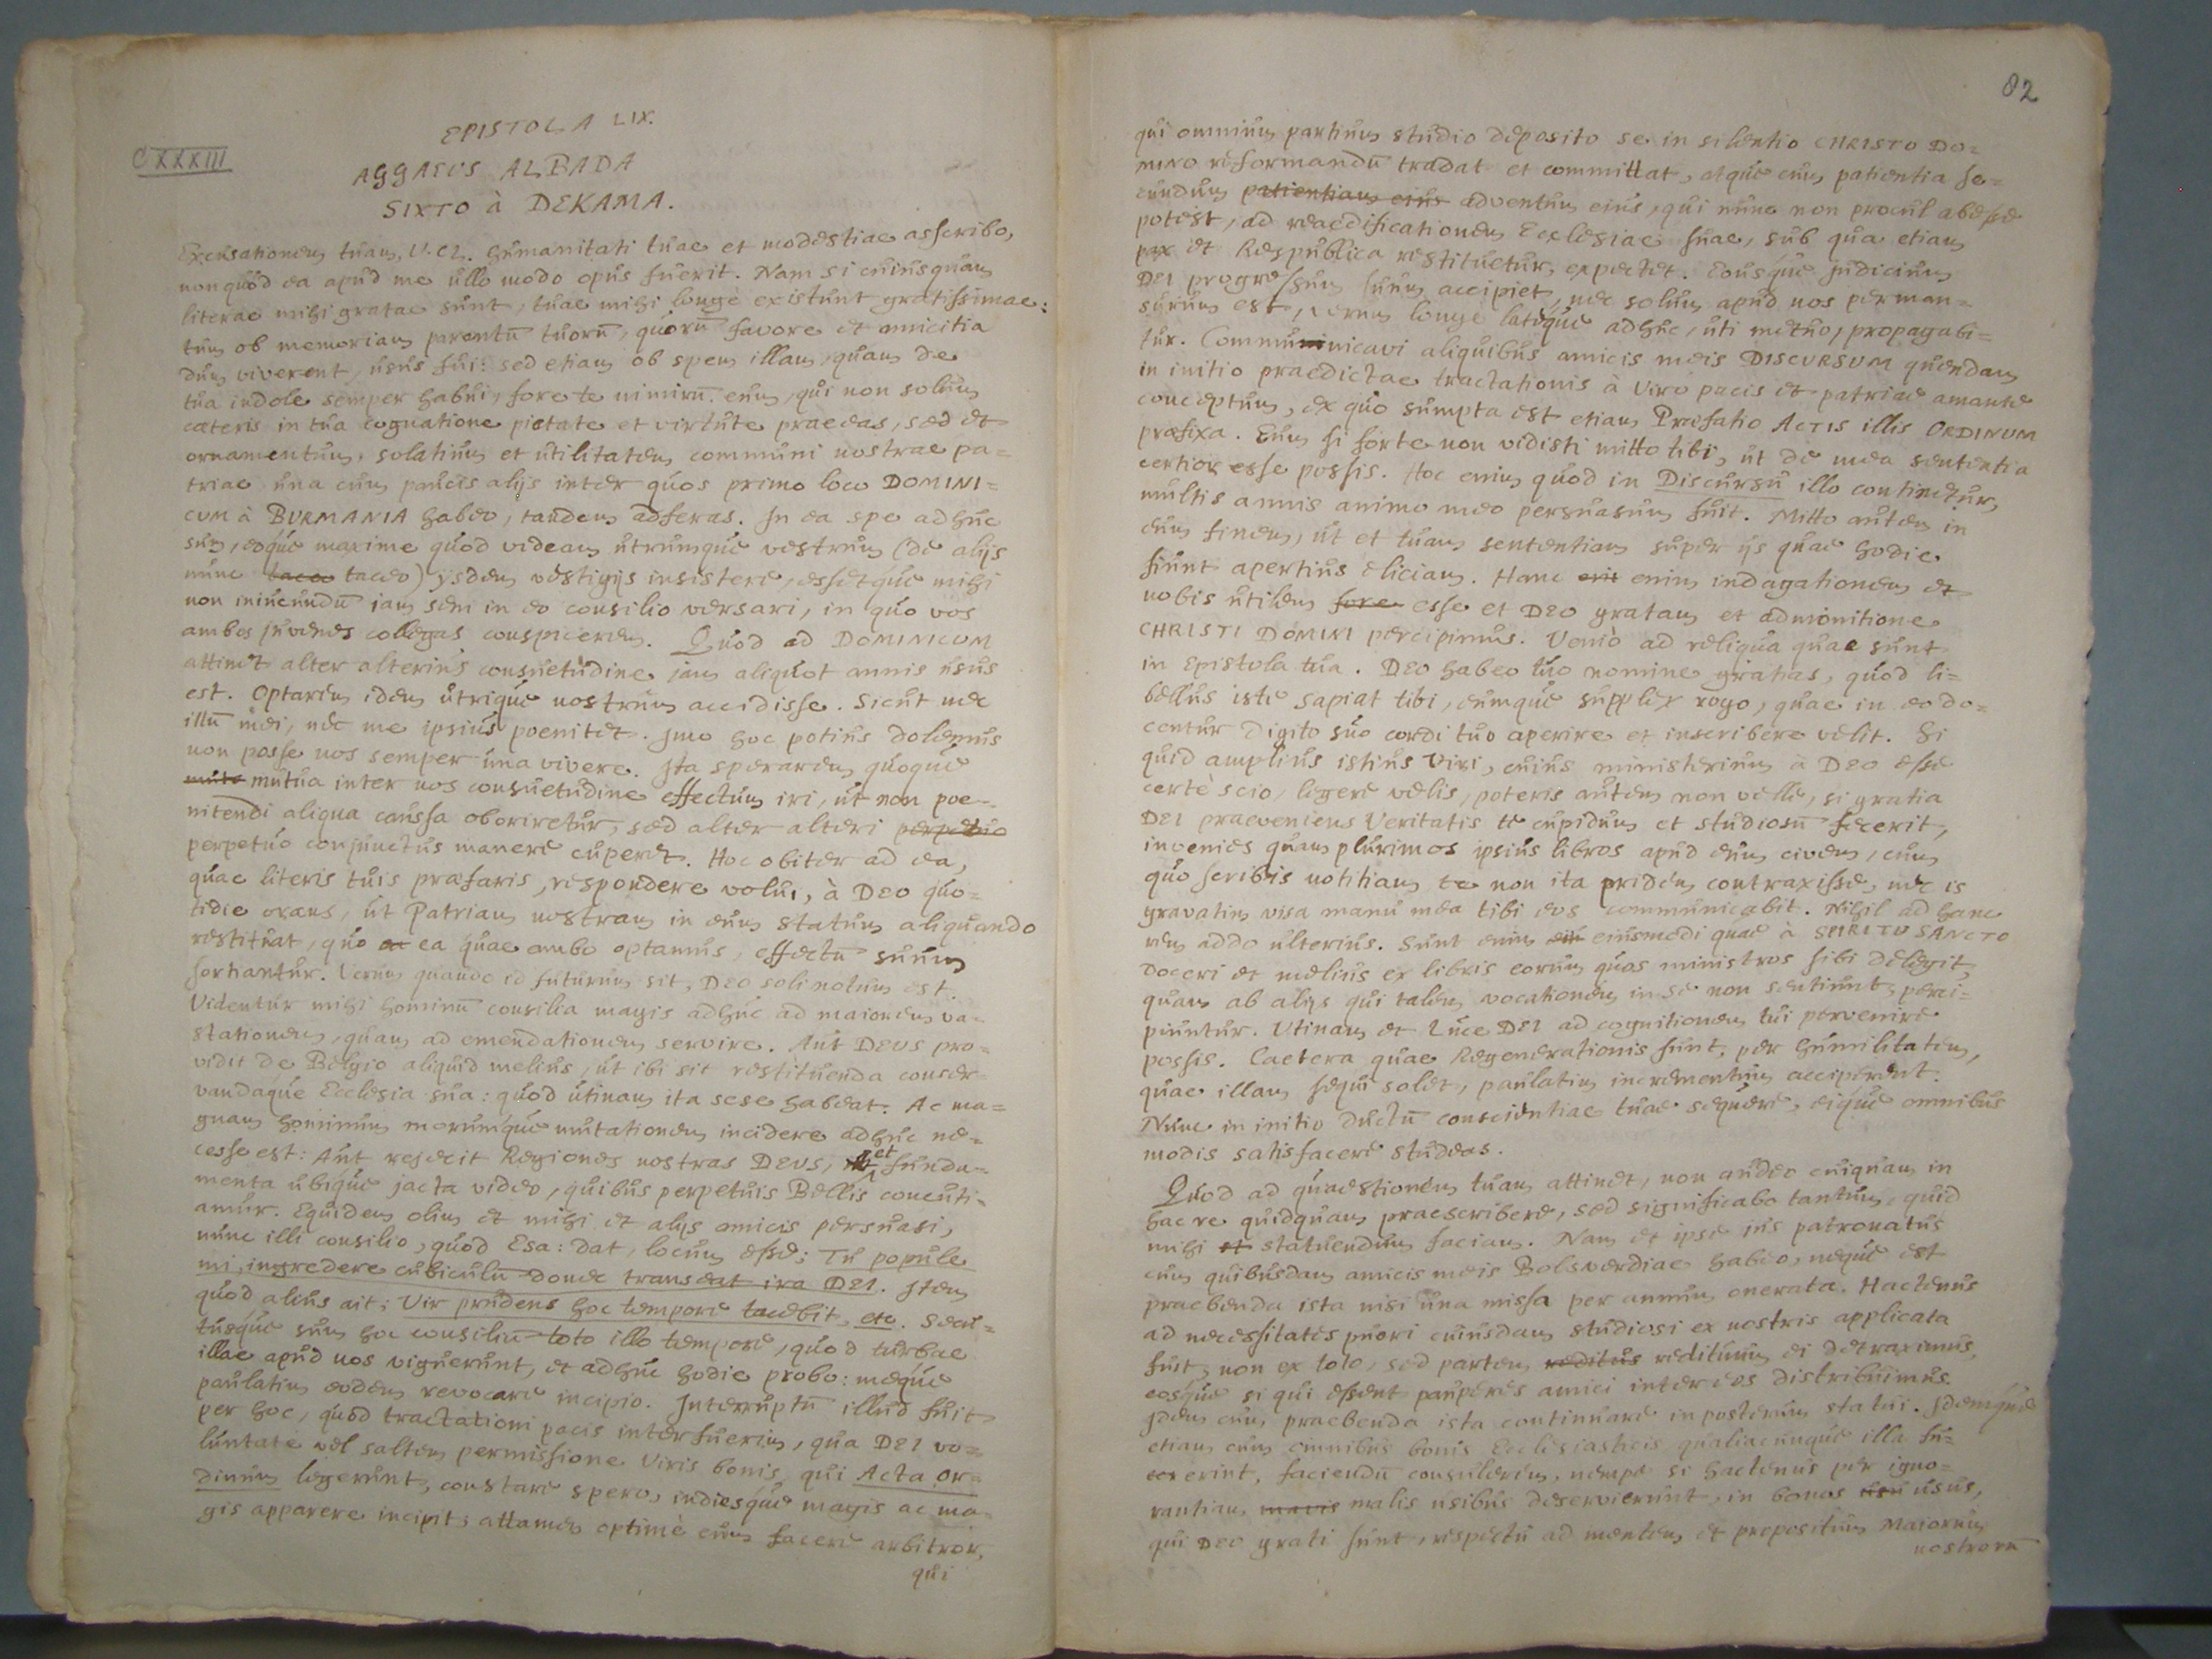 EPISTOLA LIX.
CXXXIII
AGGAEUS ALBADA
SIXTO à DEKAMA.
Excusationem tuam, V. Cl. humanitati tuae et modestiae asscribo,
non quòd ea apud me ullo modo opus fuerit. Nam si cuiusquam
literae mihi gratae sunt, tuae mihi longè existunt gratissimae:
tum ob memoriam parentū tuorū, quorū favore et amicitia
dum viverent, usus fui: sed etiam ob spem illam, quam de
tua indole semper habui, fore te nimirū eum, qui non solùm
caeteris in tua cognatione pietate et virtute praeeas, sed et
ornamentum, solatium et utilitatem communi nostrae pa=
triae una cum paucis alijs inter quos primo loco DOMINI=
CUM à BURMANIA habeo, tandem adferas. In ea spe adhuc
sum, eoque maxime quod videam utrumque vestrum (de alijs
nunc taceo taceo) ysdem vestigijs insistere, essetque mihi
non iniucundū iam sem in eo consilio versari, in quo vos
ambos juvenes collegas conspicerem. Quod ad DOMINICUM
attinet alter alterius consuetudine iam aliquot annis usus
est. Optarem idem utrique nostrum accidisse. Sicut nec
illū mei, nec me ipsius poenitet. Imo hoc potius dolemus
non posse nos semper una vivere. Ita sperarem quoque
mute mutua inter nos consuetudine effectum iri, ut non poe=
nitendi aliqua caussa oboriretur, sed alter alteri perpetuo
perpetuo conjunctus manere cuperet. Hoc obiter ad ea,
quae literis tuis praefaris, respondere volui, à DEO quo=
tidie orans, ut Patriam nostram in eum statum aliquando
restituat, quo ea quae ambo optamus, effectū suum
sortiantur. Verum quando id futurum sit, DEO soli notum est.
Videntur mihi hominū consilia magis adhuc ad maiorem va=
stationem, quam ad emendationem servire. Aut DEUS pro=
vidit de Belgio aliquid melius, ut ibi sit restituenda conser=
vandaque Ecclesia sua: quod utinam ita sese habeat. Ac ma=
gnam hominum morumque mutationem incidere adhuc ne=
cesse est: Aut rejecit Regiones nostras DEUS, et funda=
menta ubique jacta video, quibus perpetuis Bellis concuti=
amur. Equidem olim et mihi et alijs amicis persuasi,
nunc illi consilio, quod Esa: dat, locum esse; Tu popule
mi, ingredere cubiculū donec transeat ira DEI. Item
quod alius ait; Vir prudens hoc tempore tacebit, etc. Secu=
tusque sum hoc consiliū toto illo tempore, quo d turbae
illae apud nos viguerunt, et adhuc hodie probo: meque
paulatim eodem revocare incipio. Interruptū illud fuit
per hoc, quod tractationi pacis interfuerim, qua DEI vo=
luntate vel saltem permissione Viris bonis, qui Acta Or=
dinum legerunt, constare spero, indiesque magis ac ma=
gis apparere incipit; attamen optimè eum facere arbitror,
qui
82
qui omnium partium studio deposito se in silentio CHRISTO DO=
MINO reformandū tradat et committat, atque cum patientia se=
cundum patientiam eius adventum eius, qui nunc non procul abesse
potest, ad reaedificationem Ecclesiae suae, sub qua etiam
pax et Respublica restituetur, expectet. Eousque judicium
DEI progressum suum accipiet, nec solum apud nos perman=
surum est, verum longe lateque adhuc, uti metuo, propagabi=
tur. Communicavi aliquibus amicis meis DISCURSUM quendam
in initio praedictae tractationis à Viro pacis et patriae amante
conceptum, ex quo sumpta est etiam Praefatio ACTIS illis ORDINUM
praefixa. Eum si forte non vidisti mitto tibi, ut de mea sententia
certior esse possis. Hoc enim quod in Discursu illo continetur,
multis annis animo meo persuasum fuit. Mitto autem in
eum finem, ut et tuam sententiam super ijs quae hodie
fiunt apertius eliciam. Hanc erit enim indagationem et
nobis utilem fore esse et DEO gratam et admonitione
CHRISTI DOMINI percipimus. Venio ad reliqua quae sunt
in Epistola tua. DEO habeo tuo nomine gratias, quod li=
bellus iste sapiat tibi, eumque supplex rogo, quae in eo do=
centur digito suo cordi tuo aperire et inscribere velit. Si
quid amplius istius Viri, cuius ministerium à DEO esse
certè scio, legere velis, poteris autem non velle, si gratia
DEI praeveniens Veritatis te cupidum et studiosū fecerit,
invenies quam plurimos ipsius libros apud eum civem, cum
quo scribis notitiam te non ita pridem contraxisse, nec is
gravatim visa manu mea tibi eos communicabit. Nihil ad hanc
rem addo ulterius. Sunt enim eiusmodi quae à SPIRITU SANCTO
doceri et melius ex libris eorum quos ministros sibi delegit,
quam ab alijs qui talem vocationem in se non sentiunt, perci=
piuntur. Utinam et luce DEI ad cognitionem tui pervenire
possis. Caetera quae Regenerationis sunt, per humilitatem,
quae illam sequi solet, paulatim incrementum acciperent.
Nunc in initio ductū conscientiae tuae sequere, eique omnibus
modis satisfacere studeas.
Quod ad quaestionem tuam attinet, non audeo cuiquam in
hac re quidquam praescribere, sed significabo tantum, quid
mihi et statuendum faciam. Nam et ipse jus patronatus
cum quibusdam amicis meis Bolsverdiae habeo, neque est
praebenda ista nisi una missa per annum onerata. Hactenus
ad necessitates pueri cuiusdam studiosi ex nostris applicata
fuit, non ex toto, sed partem reditus redituum ei detraximus,
eosque si qui essent pauperes amici inter eos distribuimus.
Idem cum praebenda ista continuare in posterum statui. Idemque
etiam cum omnibus bonis Ecclesiasticis qualiacunque illa fu=
erint, faciendū consulerem, nempe si hactenus per igno=
rantiam malis usibus deservierunt, in bonos usu usus,
qui DEO grati sunt, respectu ad mentem et propositum Maiorum
nostrorū